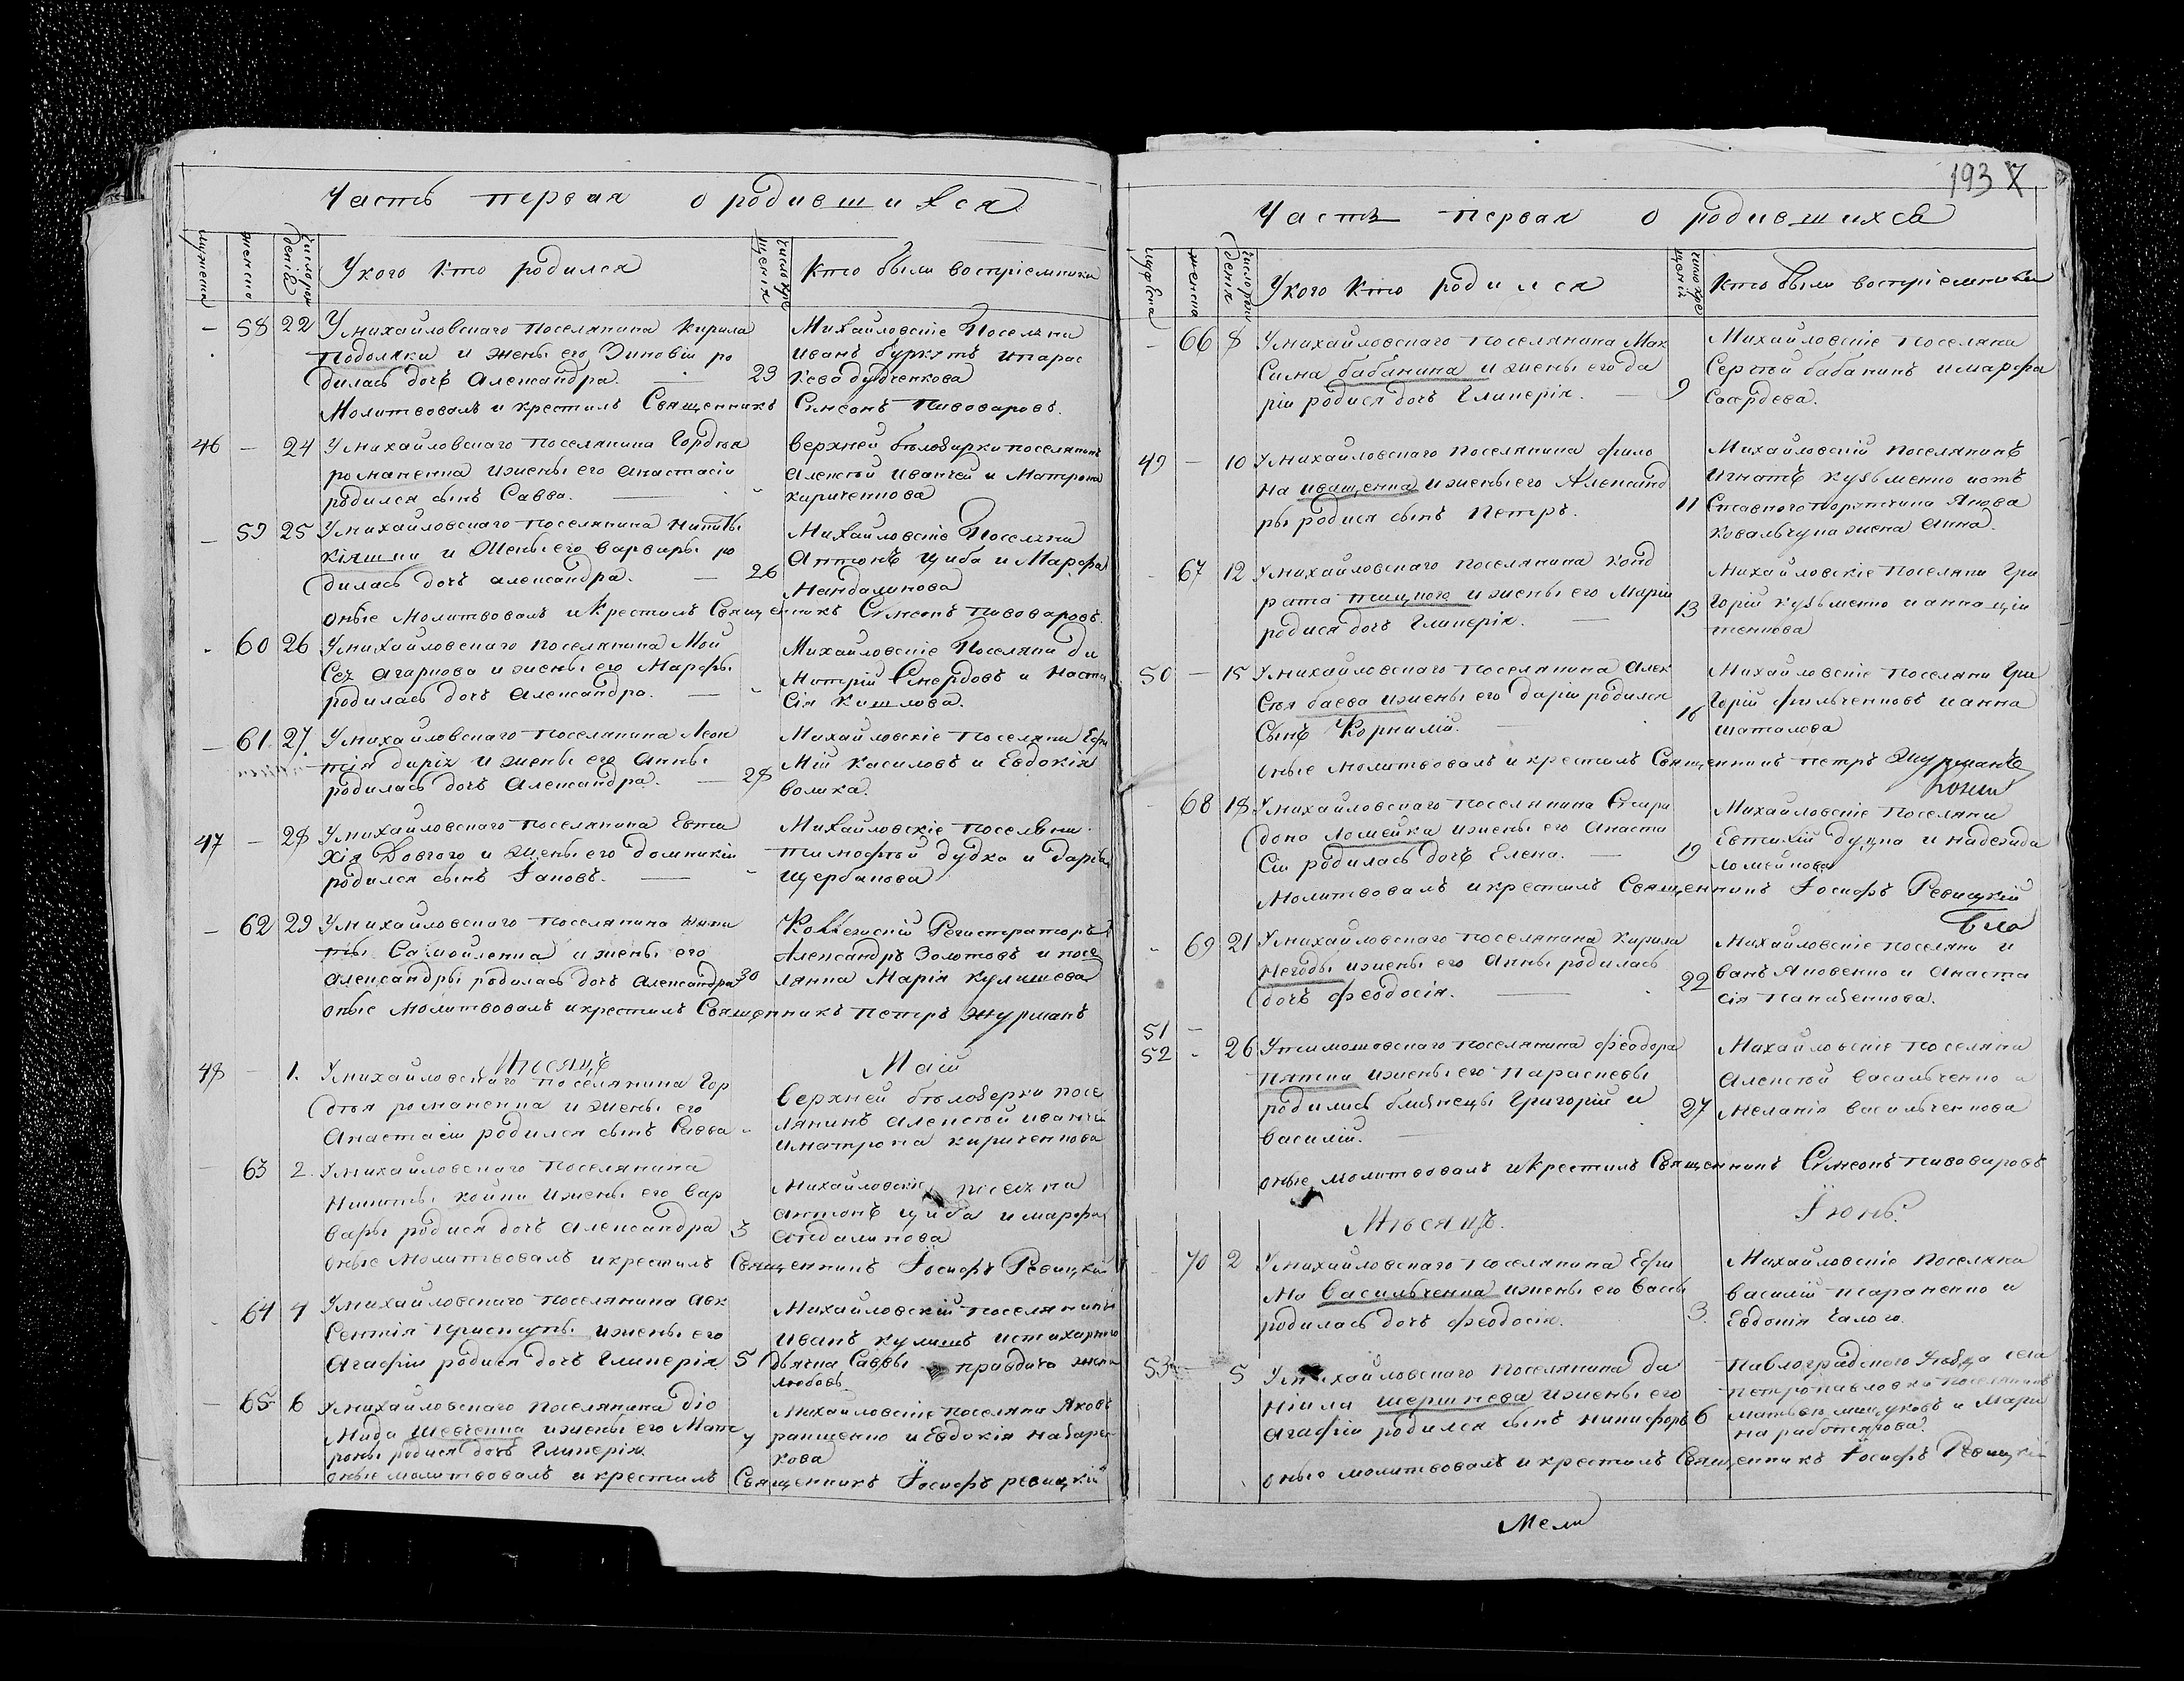 Часть первая о родившихся
мужеска
женска
Число рож
деніе
У кого кто родился
число кре
щенія
Кто были воспріемники
58 22 У михайловскаго поселянина Кирила
Подоляки и жены его Зиновіи ро
дилась дочь Александра. 23
Михайловскіе Поселяни
иванъ буркутъ и парас
кева дудченкова
Молитвовалъ и крестилъ Священникъ Сѵмеонъ Пивоваровъ.
46 24 У михайловскаго поселянина Гордѣя
романенка и жены его анастасіи
родился сынъ Савва.
верхней бѣлозирки поселянинъ
алексѣй иванчей и Матрона
кириченкова
59 25 У михайловскаго поселянина Никиты
кіяшки и жены его варвары ро
дилась дочь александра. 26
Михайловскіе Поселяни
Антонъ Циба и Марфа
Мандаликова
оные Молитвовалъ и Крестилъ Священникъ Сѵмеонъ пивоваровъ.
60 26 У михайловскаго поселянина Мои
сея агаркова и жены его Марфы
родилась дочь Александра.
Михайловскіе Поселяни Ди
Митрій Смердовъ и Наста
сія Кишлова.
61. 27. У михайловскаго поселянина Леон
тія дирія и жены его Анны
родилась дочь Александра. 28
Михайловскіе поселяни Ефи
мій Касиловъ и Евдокія
волика.
47 28 У михайловскаго поселянина Евти
хія Довгого и жены его домникіи
родился сынъ Іаковъ.
Михайловскіе поселяни
тимофѣй дудка и дарія
щербакова
62 29 У михайловскаго поселянина Ники
ты Самойленка и жены его
александры родилась дочь александра 30
Коллежскій Регистраторъ
Александръ Золотовъ и посе
лянка Марія кулишева
оные Молитвовалъ и крестилъ Священникъ петръ Журманъ
Мѣсяцъ Маій
48 1. У михайловскаго поселянина Гор
дѣя романенка и жены его
Анастасіи родился сынъ Савва
верхней бѣлозерки посе
лянинъ алексѣй иванчей
и матрона кириченкова
63 2. У михайловскаго поселянина
Никиты кошки и жены его вар
вары родися дочь александра 3
Михайловскіе поселяни
антонъ циба и марфа
андаликова
оные Молитвовалъ и крестилъ Священникъ Іосифъ Ревицкій
64 4 У михайловскаго поселянина авк
сентія прискупы и жены его
Агафіи родися дочь Гликерія 5
Михайловскій поселянинъ
иванъ кулишъ и
дьячка Саввы правдича жена
любовь.
65 6 У михайловскаго поселянина діо
мида шевченка и жены его Мат
роны родися дочь Гликерія 7
Михайловскіе поселяни Яковъ
ращенко и Евдокія
кова
оные молитвовалъ и крестилъ Священникъ Іосифъ ревицкій
193
Часть первая о родившихся
мужеска
женска
Число рож
денія
У кого кто родился
число кре
щенія
Кто были воспріемники
66 8 У михайловскаго поселянина Мак
сима бабанина и жены его да
ріи родися дочь Гликерія. 9
Михайловскіе поселяна
Сергѣй бабанинъ и марфа
49 10 У михайловскаго поселянина фило
на иващенка и жены его Александ
ры родися сынъ Петръ. 11
Михайловскій поселянинъ
Игнатъ кузьменко и отъ
ставного портнина Якова
ковальчука жена Анна.
67 12 У михайловскаго поселянина Конд
рата тицкого и жены его Маріи
родися дочь Гликерія. 13
Михайловскіе поселяни Гри
горій кузьменко и анна
тенкова
50 15 У михайловскаго поселянина Алек
сѣя баева и жены его даріи родился
Сынъ Корнилій. 16
Михайловскіе поселяни Гри
горій фильченковъ и анна
шаталова
оные молитвовалъ и крестилъ Священникъ петръ Журманъ
68 18 У михайловскаго поселянина Спири
дона Ломейка и жены его Анаста
сіи родилась дочь Елена. 19
Михайловскіе Поселяна
Евтихій дудка и надежда
ломейкова
Молитвовалъ и крестилъ Священникъ Іосифъ Ревицкій
69 21 У михайловскаго поселянина Кирила
Негоды и жены его Анны родилась
дочь феодосія. 22
Михайловскіе поселяни и
ванъ Яковенко и Анаста
сія папазенкова.
51
52 26 У тимошовскаго поселянина феодора
пятка и жены его параскевы
родились близнецы Григорій и
василій. 27
Михайловскіе поселяна
алексѣй васильченко и
Меланія васильченкова
оные молитвовалъ и крестилъ Священникъ Сѵмеонъ пивоваровъ
Мѣсяцъ. Іюнь.
70 2 У михайловскаго поселянина Ефи
ма васильченка и жены его Вассы
родилась дочь феодосія. 3.
Михайловскіе поселяна
василій псараненко и
Евдокія Чалого
53 5 У михайловскаго поселянина да
ніила шершнева и жены его
агафіи родился сынъ никифоръ 6
павлоградского уѣзда села
петропавловки поселянинъ
матвѣй мищуковъ и Мари
на работягова.
оные молитвовалъ и крестилъ Священникъ Іосифъ Ревицкій